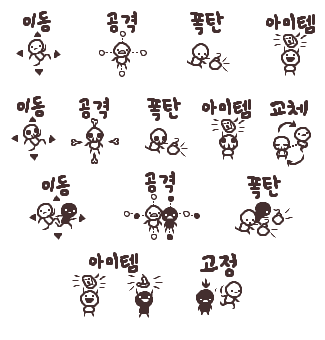 이동 공격 폭탄 아이템
이동 공격 폭탄 아이템 교체
이동 공격 폭탄
아이템 고정